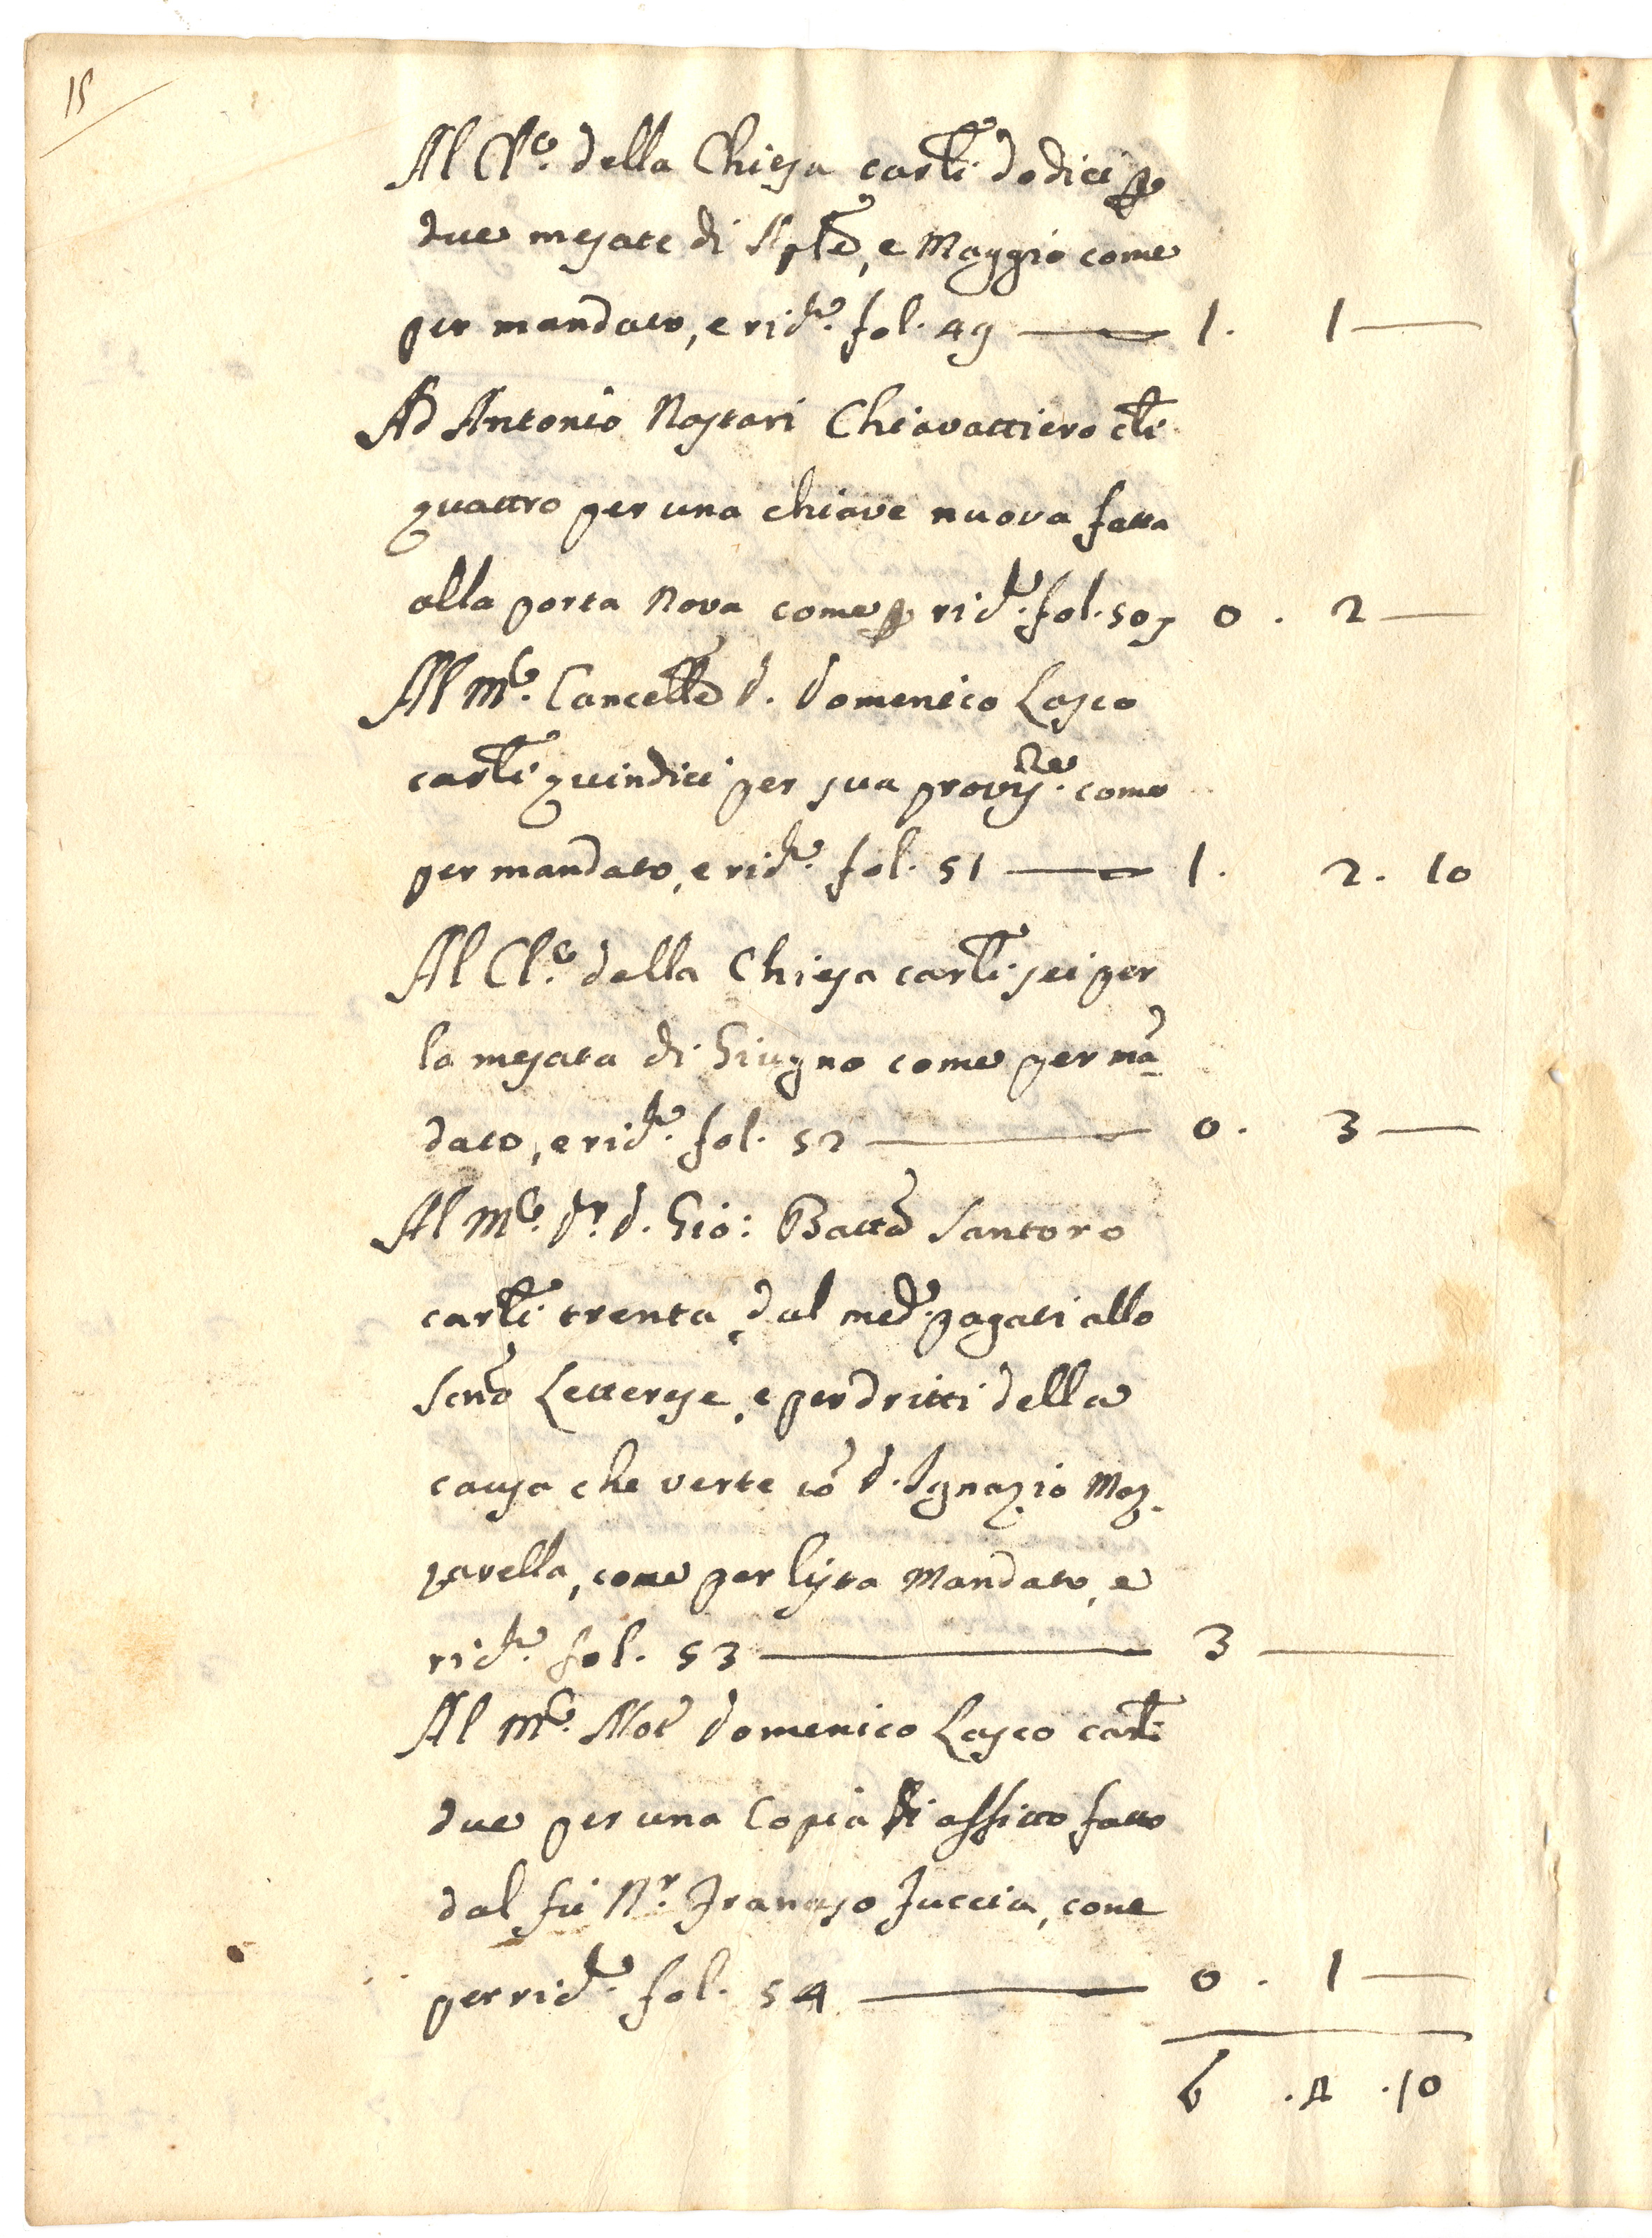 15
Al Cl.co della Chiesa carli dodici p
due mesate di Aple, e Maggio come
per mandato, e rić.ta fol. 49 — 1. 1 —
Ad Antonio Nastari Chiavattiero cli
quattro per una chiave nuova fatta
alla porta Nova come p rić.ta fol. 50 0 . 2 —
Al m.co Cancelle d. Domenico Lasco
carli quindici per sua provis.ne come
per mandato, e rić.ta fol. 51 — 1. 2. 10
Al Cl.co della Chiesa carli sei per
la mesata di Giugno come per ma
dato, e rić.ta fol. 52 — 0. 3 —
Al m.co d.r d. Gio: Batta Santoro
carli trenta dal med. pagati allo
Scno Letterese, e per dritti della
causa che verte co d. Ignazio Maz
zarella, come per lista Mandato, e
rić.ta fol. 53 — 3 —
Al m.co Not Domenico Lasco carli
due per una Copia di affitto fatto
dal fù N.r Franceso Juccia, come
per rić.ta fol. 54 — 0 . 1 —
6 . . 10